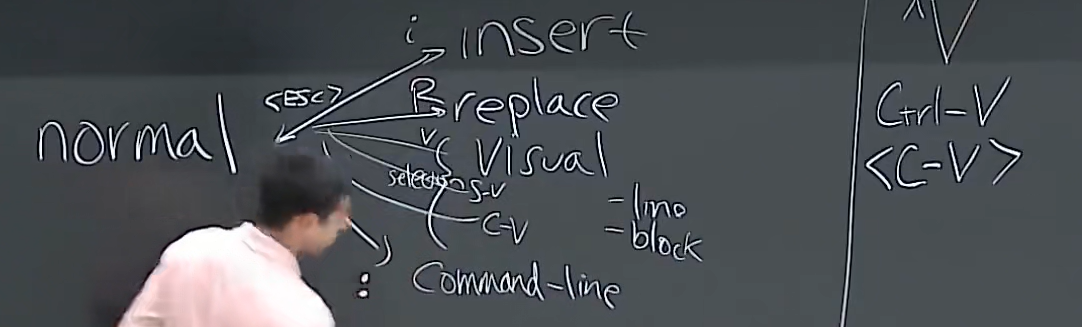 i insert
<ESC>
R replace
normal
v visual
selection
S-V
-line
C-V
-block
: Command-line
^V
Ctrl-V
<C-V>